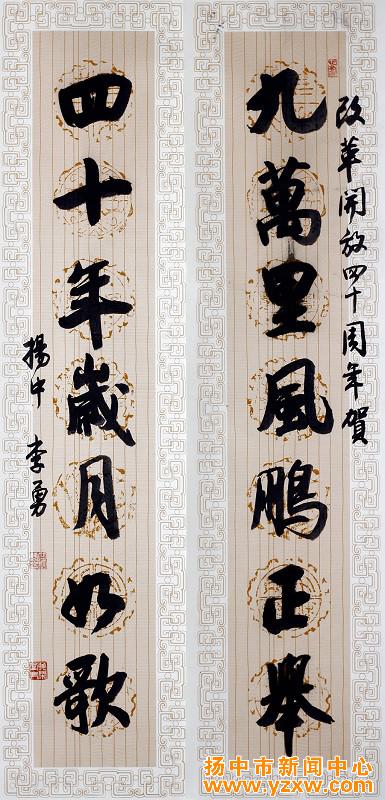 改革開放四十周年賀
九萬里風鵬正舉
四十年歲月如歌
揚中 李勇
扬中市新闻中心
www.yzxw.com